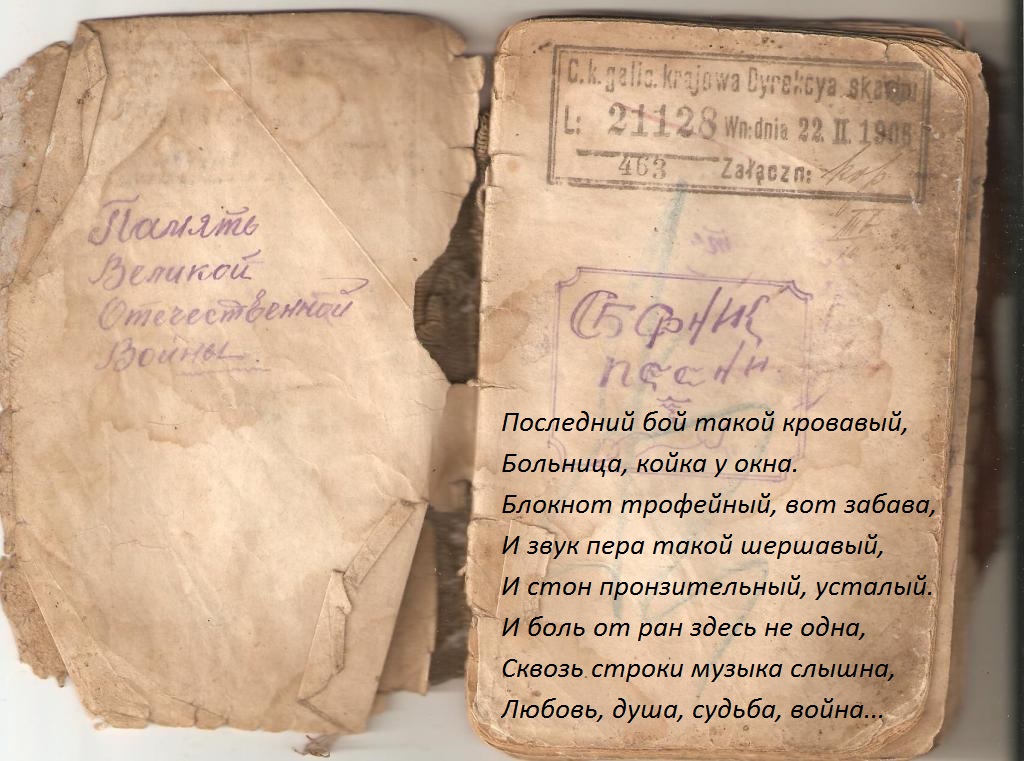 Память
Великой
Отечественной
Войны
C. k. galic. krajowa Dyrekcya skarbu
L: 21128 Wn: dnia 22. II. 1906
463 Załączn:
СБОРНИК
песни
Последний бой такой кровавый,
Больница, койка у окна.
Блокнот трофейный, вот забава,
И звук пера такой шершавый,
И стон пронзительный, усталый.
И боль от ран здесь не одна,
Сквозь строки музыка слышна,
Любовь, душа, судьба, война...